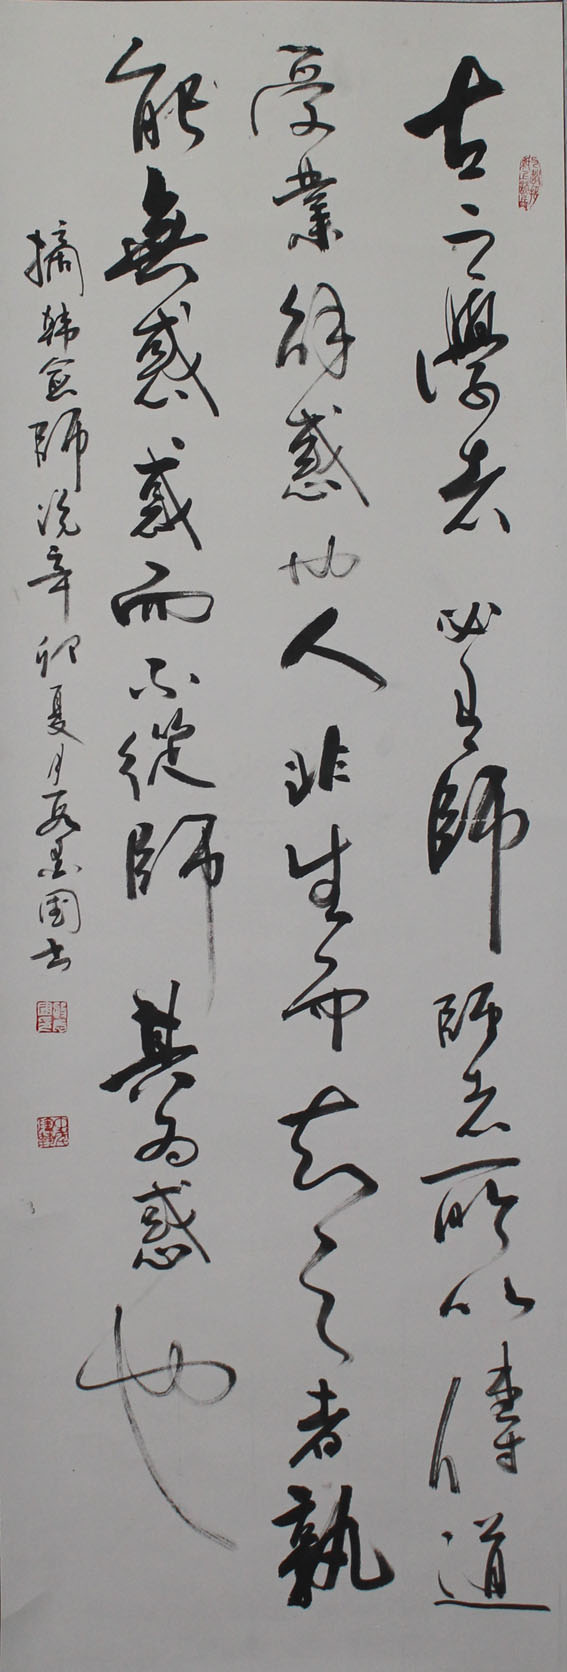 古之學者必有師師者所以傳道
受業解惑也人非生而知之者孰
能無惑惑而不從師其為惑也
摘韩愈師说辛卯夏月段志國书